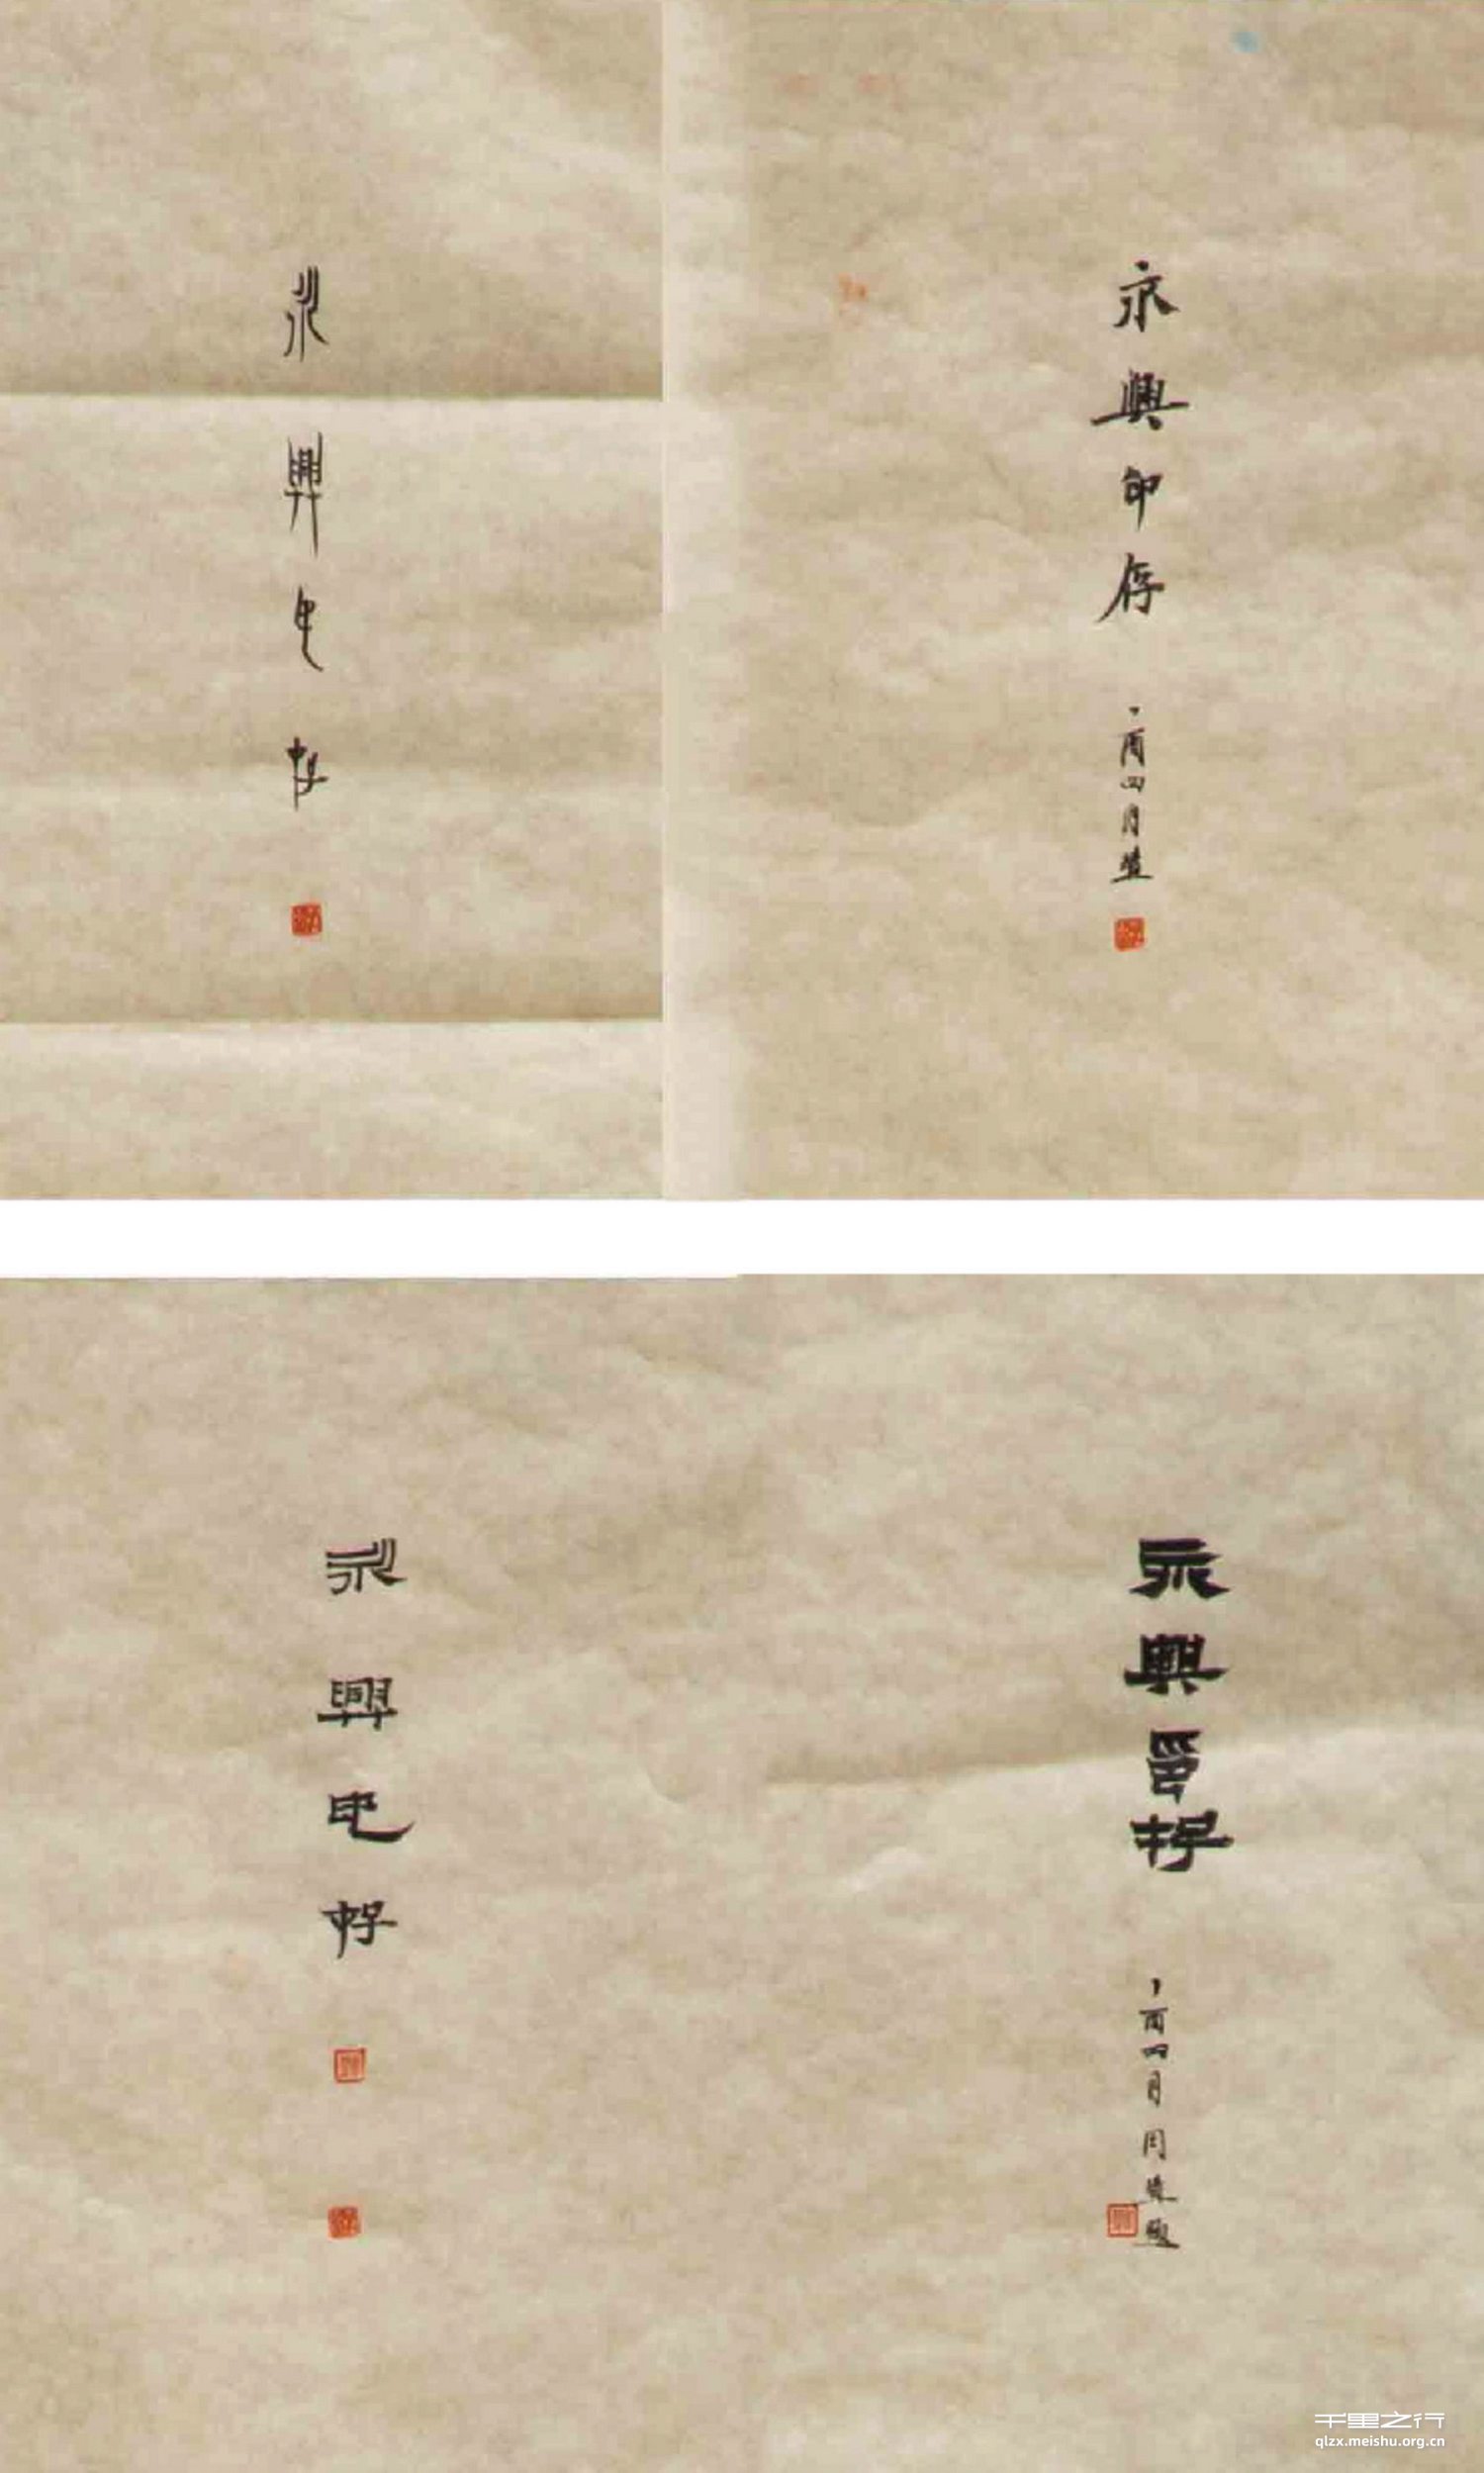 永興印存
永興印存
丁酉四月
永興印存
永興印存
丁酉四月
千里之行
qlzx.meishu.org.cn